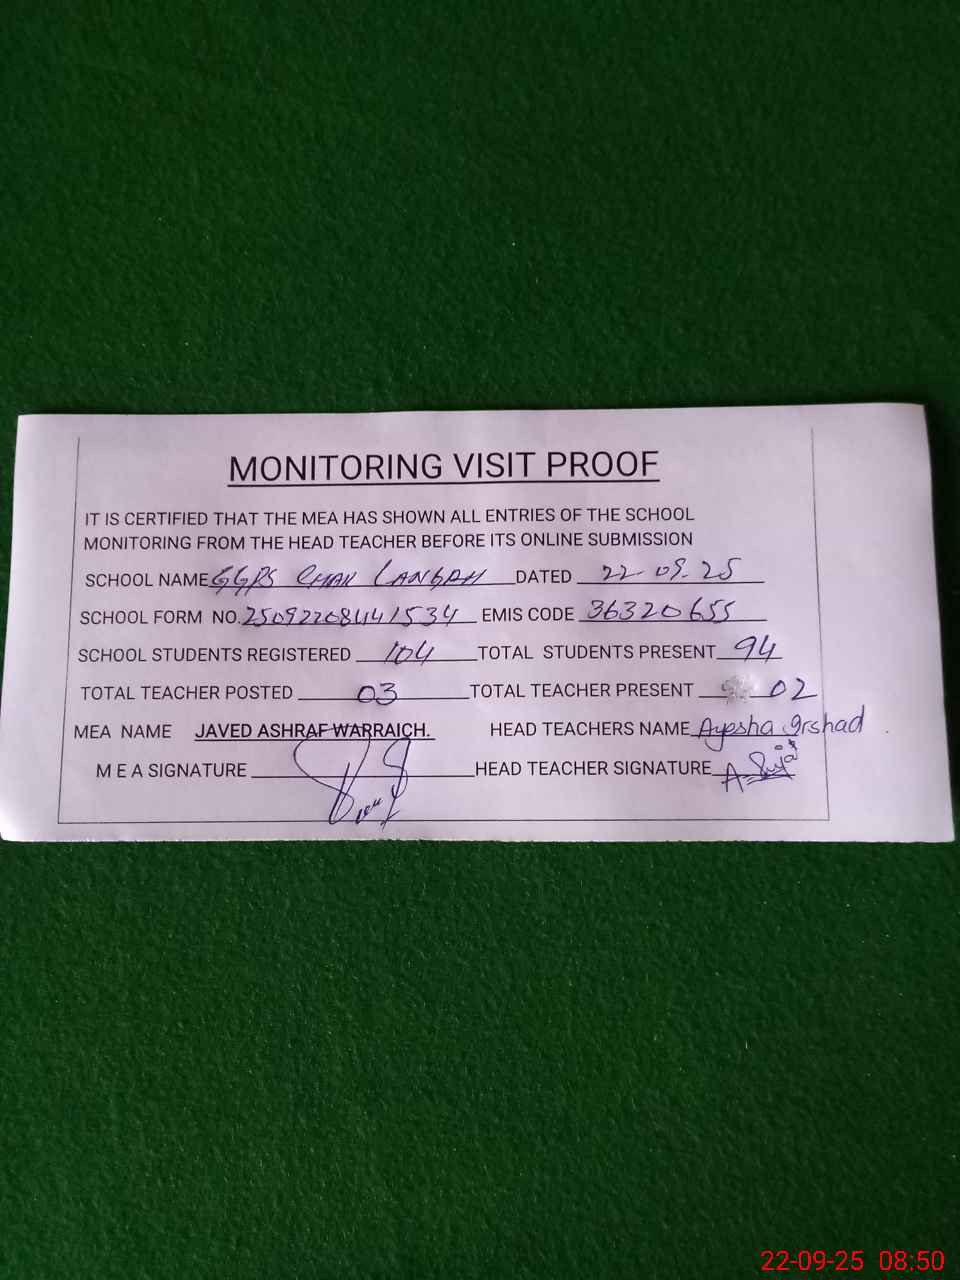 MONITORING VISIT PROOF
IT IS CERTIFIED THAT THE MEA HAS SHOWN ALL ENTRIES OF THE SCHOOL
MONITORING FROM THE HEAD TEACHER BEFORE ITS ONLINE SUBMISSION
SCHOOL NAME GGPS CHAK LANGAH DATED 22-09-25
SCHOOL FORM NO. 25092208441534 EMIS CODE 36320655
SCHOOL STUDENTS REGISTERED 104 TOTAL STUDENTS PRESENT 94
TOTAL TEACHER POSTED 03 TOTAL TEACHER PRESENT 02
MEA NAME JAVED ASHRAF WARRAICH. HEAD TEACHERS NAME Ayesha Irshad
M E A SIGNATURE HEAD TEACHER SIGNATURE
22-09-25 08:50